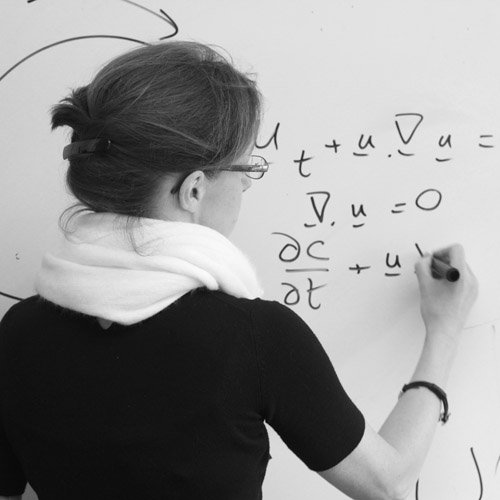 u_t + u . ∇ u =
∇ . u = 0
∂c/∂t + u